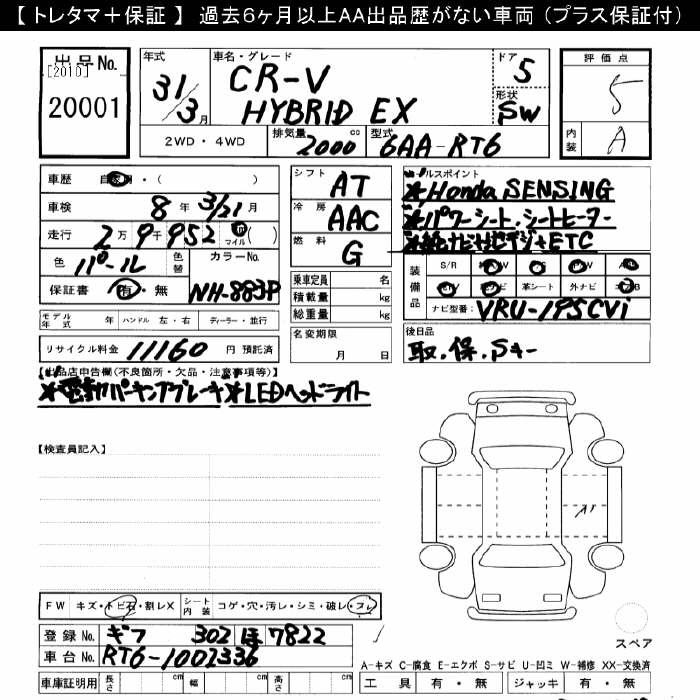 【トレタマ＋保証】 過去6ヶ月以上AA出品歴がない車両（プラス保証付）
出品No.
[2010]
20001
年式
31/3月
車名・グレード
CR-V
HYBRID EX
ドア
5
形状
SW
評価点
5
内装
A
2WD・4WD
排気量
2000 cc
型式
6AA-RT6
車歴 自家用・( )
車検 8年 3/21月
走行 2万9千952 マイル( )
色 パール
色替
カラーNo.
NH-883P
保証書 有・無
シフト AT
冷房 AAC
燃料 G
乗車定員 名
積載量 kg
総重量 kg
セールスポイント
*Honda SENSING
*パワーシート.シートヒーター
*純ナビ地デジ+ETC
装備品
S/R
革シート 外ナビ
ナビ型番: VRU-195CVi
モデル年式 年 ハンドル 左・右 ディーラー・並行
名変期限
月 日
後日品
取.保.Sキー
リサイクル料金 11160 円 預託済
【出品店申告欄(不良箇所・欠品・注意事項等)】
*電動パーキングブレーキ*LEDヘッドライト
【検査員記入】
A1
FW キズ・トビ石・割レX
シート内装 コゲ・穴・汚レ・シミ・破レ・スレ
登録No. ギフ 302 ほ 7822
車台No. RT6-1002336
車庫証明用 長さ cm 幅 cm 高さ cm
スペア
A-キズ C-腐食 E-エクボ S-サビ U-凹ミ W-補修 XX-交換済
工具 有・無 ジャッキ 有・無